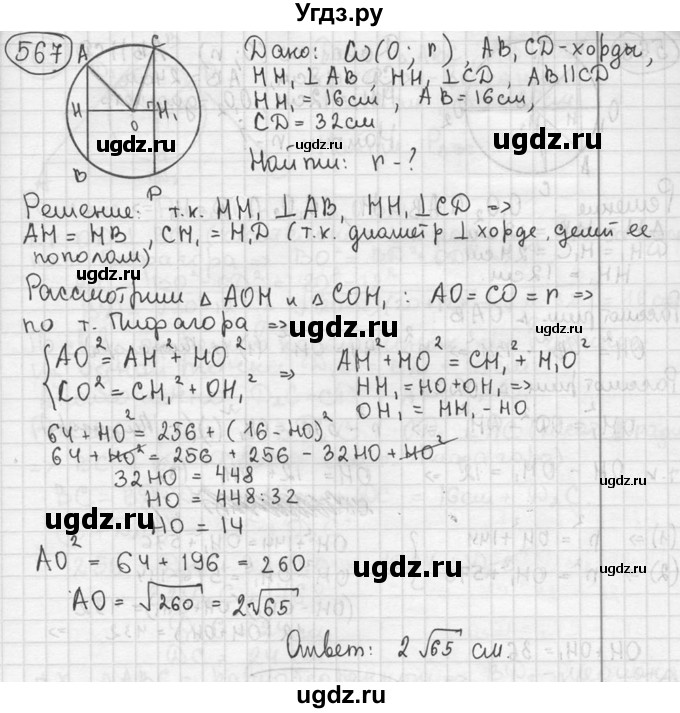 Угдз.ру
567
A
C
Дано: ω(O; r), AB, CD-хорды,
HH₁⊥AB, HH₁⊥CD, AB∥CD
H
H₁
HH₁=16см, AB=16см,
O
ugdz.ru
CD=32см
ugdz.ru
B
Найти: r-?
P
Решение: т.к. HH₁⊥AB, HH₁⊥CD =>
AH=HB, CH₁=H₁D (т.к. диаметр ⊥ хорде, делит ее
пополам)
ugdz.ru
Рассмотрим △AOH и △COH₁: AO=CO=r =>
по т. Пифагора =>
ugdz.ru
ugdz.ru
AO²=AH²+HO²
CO²=CH₁²+OH₁²
=>
AH²+HO²=CH₁²+H₁O²
HH₁=HO+OH₁ =>
OH₁=HH₁-HO
64+HO²=256+(16-HO)²
64+HO²=256+256-32HO+HO²
32HO=448
HO=448:32
ugdz.ru
ugdz.ru
ugdz.ru
HO=14
AO²=64+196=260
AO=√260=2√65
ugdz.ru
Ответ: 2√65 см.
ugdz.ru
ugdz.ru
ugdz.ru